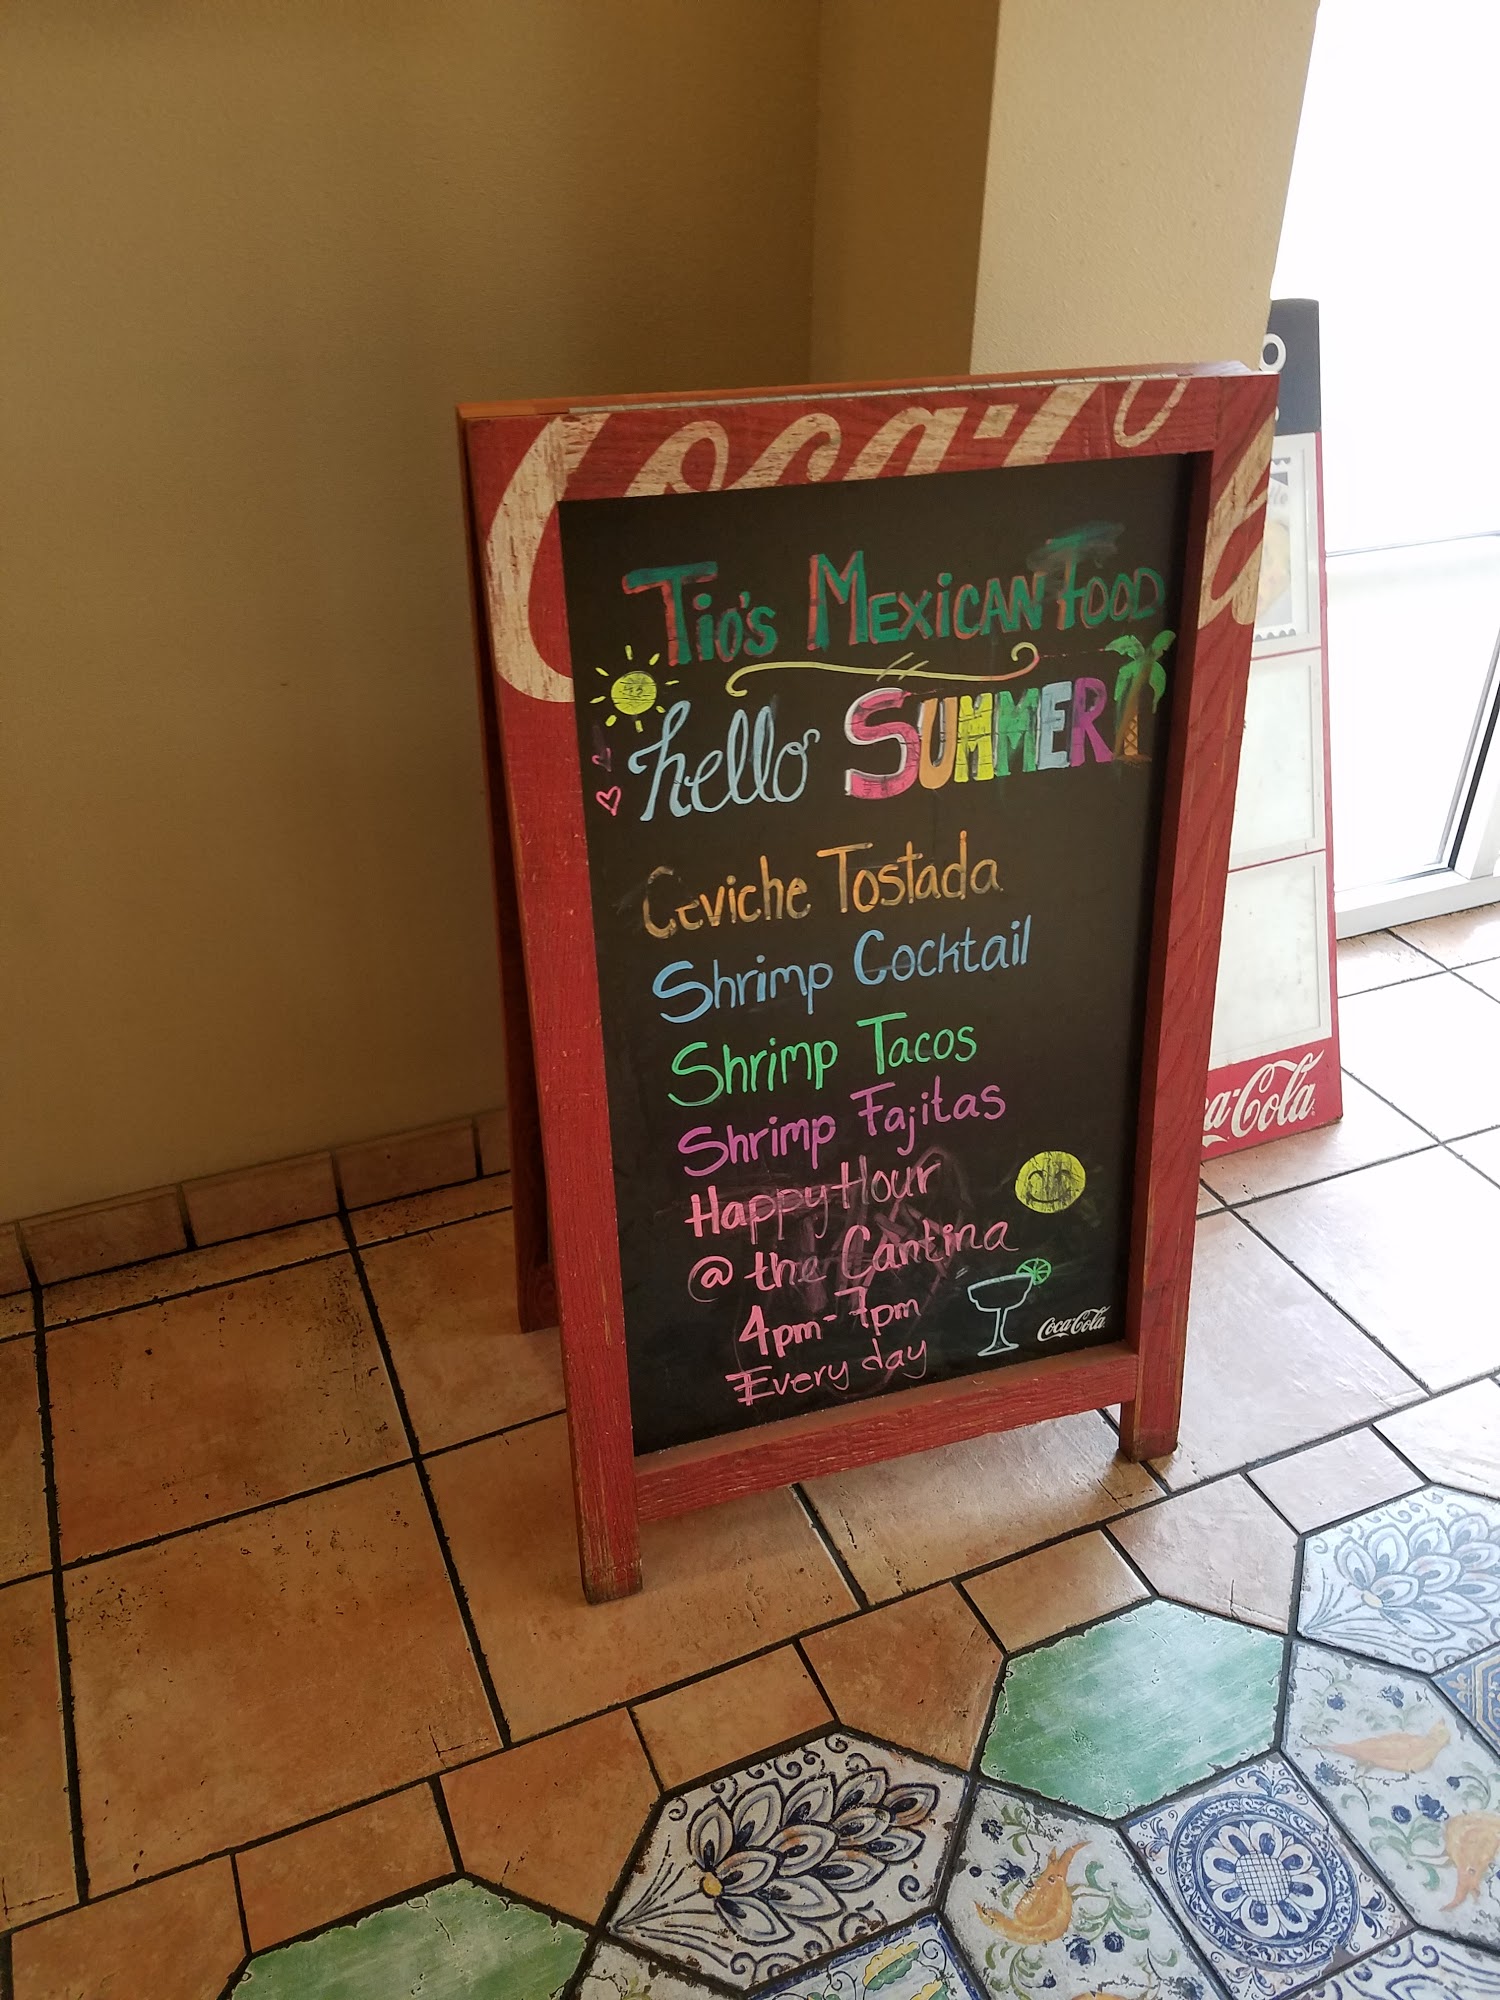 Coca-Co
Tio's Mexican Food
hello SUMMER
Ceviche Tostada
Shrimp Cocktail
Shrimp Tacos
Shrimp Fajitas
Happy Hour
@ the Cantina
4pm-7pm
Every day
Coca-Cola
a-Cola